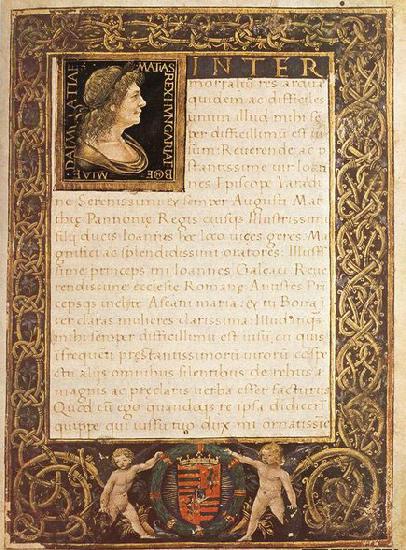 MATIAS REX HVNGARIAE BOEMIAE DALMATIAE
INTER
mortalium res arduas
quidem ac difficiles
unum illud mihi se
per difficillimum est
sum: Reverende ac p
stantissime vir Ioan
nes Episcope Varadi
ne Serenissimi & semper Augusti Mat
thię Pannonię Regis eiusq; Illustrissimi
filii ducis Ioannis hoc loco vices geres: Ma
gnifici ac splendidissimi oratores: Illustis
sime princeps mi Ioannes Galeaz Reve
rendissime ecclesie Romane Antistes Pri
cepsq; inclyte Ascani maria: & tu Bona
ter claras mulieres clarissima: Illud inqua
mihi semper difficillimum est visu, cu quis
i frequeti prestantissimorum virorum cospe
ctu aliis omnibus silentibus de rebus
magnis ac preclaris verba esset facturus
Quod cu ego quandoq; re ipsa didiceri
quippe qui iussu tuo dux mi ornatissie